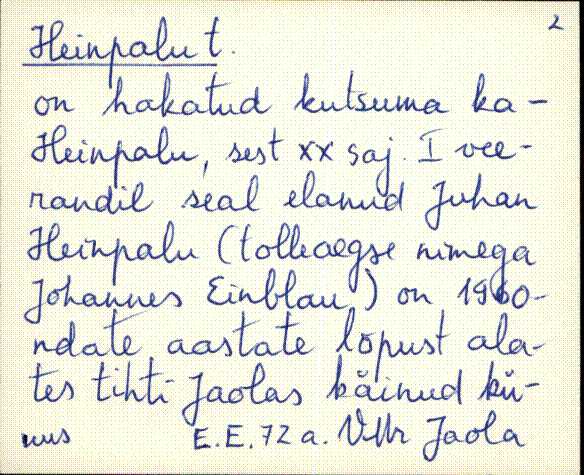 2
Heinpalu t.
on hakatud kutsuma ka -
Heinpalu, sest XX saj. I vee-
randil seal elanud Juhan
Heinpalu (tolleaegse nimega
Johannes Einblau) on 1960-
ndate aastate lõpust ala-
tes tihti Jaolas käinud kü-
nus E.E. 72 a. VMr Jaola